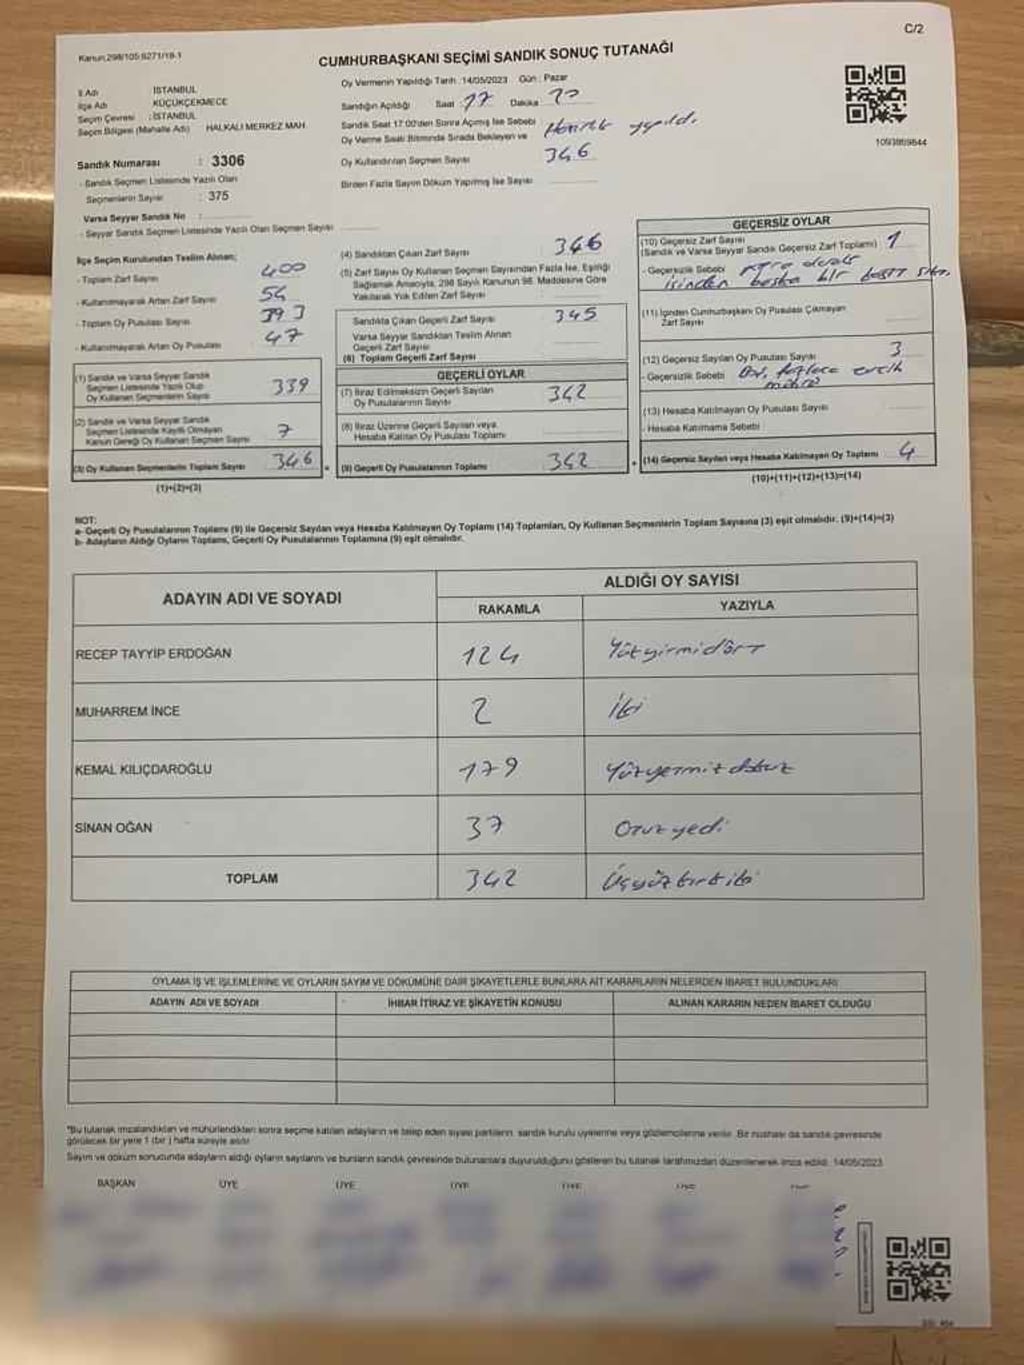 C/2
Kanun:298/105:6271/18-1
CUMHURBAŞKANI SEÇİMİ SANDIK SONUÇ TUTANAĞI
İl Adı : İSTANBUL
İlçe Adı : KÜÇÜKÇEKMECE
Seçim Çevresi : İSTANBUL
Seçim Bölgesi (Mahalle Adı) HALKALI MERKEZ MAH.
Sandık Numarası : 3306
- Sandık Seçmen Listesinde Yazılı Olan
Seçmenlerin Sayısı : 375
Varsa Seyyar Sandık No :
- Seyyar Sandık Seçmen Listesinde Yazılı Olan Seçmen Sayısı
Oy Vermenin Yapıldığı Tarih :14/05/2023 Gün : Pazar
Sandığın Açıldığı Saat : 17 Dakika
Sandık Saat 17:00'den Sonra Açılmış İse Sebebi :
Oy Verme Saati Bitiminde Sırada Bekleyen ve
Oy Kullandırılan Seçmen Sayısı 346
Birden Fazla Sayım Döküm Yapılmış İse Sayısı
1093869844
İlçe Seçim Kurulundan Teslim Alınan;
- Toplam Zarf Sayısı 400
- Kullanılmayarak Artan Zarf Sayısı 54
- Toplam Oy Pusulası Sayısı 393
- Kullanılmayarak Artan Oy Pusulası 47
(1) Sandık ve Varsa Seyyar Sandık
Seçmen Listesinde Yazılı Olup
Oy Kullanan Seçmenlerin Sayısı 339
(2) Sandık ve Varsa Seyyar Sandık
Seçmen Listesinde Kayıtlı Olmayan
Kanun Gereği Oy Kullanan Seçmen Sayısı 7
(3) Oy Kullanan Seçmenlerin Toplam Sayısı 346
(1)+(2)=(3)
(4) Sandıktan Çıkan Zarf Sayısı 346
(5) Zarf Sayısı Oy Kullanan Seçmen Sayısından Fazla İse, Eşitliği
Sağlamak Amacıyla, 298 Sayılı Kanunun 98. Maddesine Göre
Yakılarak Yok Edilen Zarf Sayısı
Sandıkta Çıkan Geçerli Zarf Sayısı 345
Varsa Seyyar Sandıktan Teslim Alınan
Geçerli Zarf Sayısı
(6) Toplam Geçerli Zarf Sayısı
GEÇERLİ OYLAR
(7) İtiraz Edilmeksizin Geçerli Sayılan
Oy Pusulalarının Sayısı 342
(8) İtiraz Üzerine Geçerli Sayılan veya
Hesaba Katılan Oy Pusulası Toplamı
(9) Geçerli Oy Pusulalarının Toplamı 342
GEÇERSİZ OYLAR
(10) Geçersiz Zarf Sayısı
(Sandık ve Varsa Seyyar Sandık Geçersiz Zarf Toplamı) 1
- Geçersizlik Sebebi
(11) İçinden Cumhurbaşkanı Oy Pusulası Çıkmayan
Zarf Sayısı
(12) Geçersiz Sayılan Oy Pusulası Sayısı 3
- Geçersizlik Sebebi
(13) Hesaba Katılmayan Oy Pusulası Sayısı
- Hesaba Katılmama Sebebi
(14) Geçersiz Sayılan veya Hesaba Katılmayan Oy Toplamı 4
(10)+(11)+(12)+(13)=(14)
NOT:
a- Geçerli Oy Pusulalarının Toplamı (9) ile Geçersiz Sayılan veya Hesaba Katılmayan Oy Toplamı (14) Toplamları, Oy Kullanan Seçmenlerin Toplam Sayısına (3) eşit olmalıdır. (9)+(14)=(3)
b- Adayların Aldığı Oyların Toplamı, Geçerli Oy Pusulalarının Toplamına (9) eşit olmalıdır.
ADAYIN ADI VE SOYADI ALDIĞI OY SAYISI
RAKAMLA YAZIYLA
RECEP TAYYİP ERDOĞAN 124 Yüzyirmidört
MUHARREM İNCE 2 İki
KEMAL KILIÇDAROĞLU 179
SİNAN OĞAN 37 Otuzyedi
TOPLAM 342 Üçyüzkırkiki
OYLAMA İŞ VE İŞLEMLERİNE VE OYLARIN SAYIM VE DÖKÜMÜNE DAİR ŞİKAYETLERLE BUNLARA AİT KARARLARIN NELERDEN İBARET BULUNDUKLARI
ADAYIN ADI VE SOYADI İHBAR İTİRAZ VE ŞİKAYETİN KONUSU ALINAN KARARIN NEDEN İBARET OLDUĞU
*Bu tutanak imzalandıktan ve mühürlendikten sonra seçime katılan adayların ve talep eden siyasi partilerin, sandık kurulu üyelerine veya gözlemcilerine verilir. Bir nüshası da sandık çevresinde
görülecek bir yere 1 (bir ) hafta süreyle asılır.
Sayım ve döküm sonucunda adayların aldığı oyların sayılarını ve bunların sandık çevresinde bulunanlara duyurulduğunu gösteren bu tutanak tarafımızdan düzenlenerek imza edildi. 14/05/2023
BAŞKAN ÜYE ÜYE ÜYE ÜYE ÜYE ÜYE